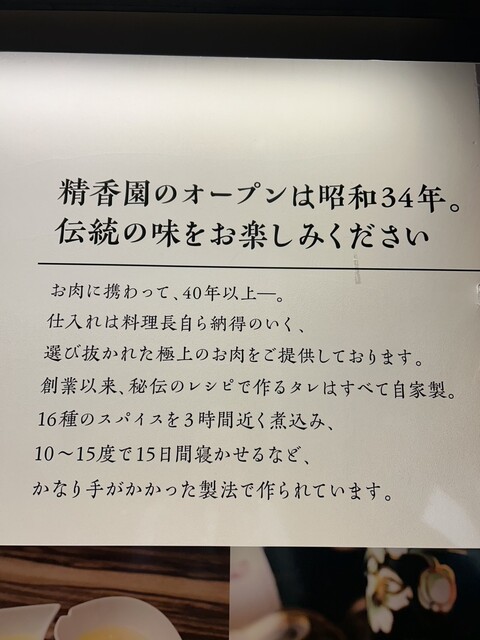 精香園のオープンは昭和34年。
伝統の味をお楽しみください
お肉に携わって、40年以上―。
仕入れは料理長自ら納得のいく、
選び抜かれた極上のお肉をご提供しております。
創業以来、秘伝のレシピで作るタレはすべて自家製。
16種のスパイスを3時間近く煮込み、
10～15度で15日間寝かせるなど、
かなり手がかかった製法で作られています。